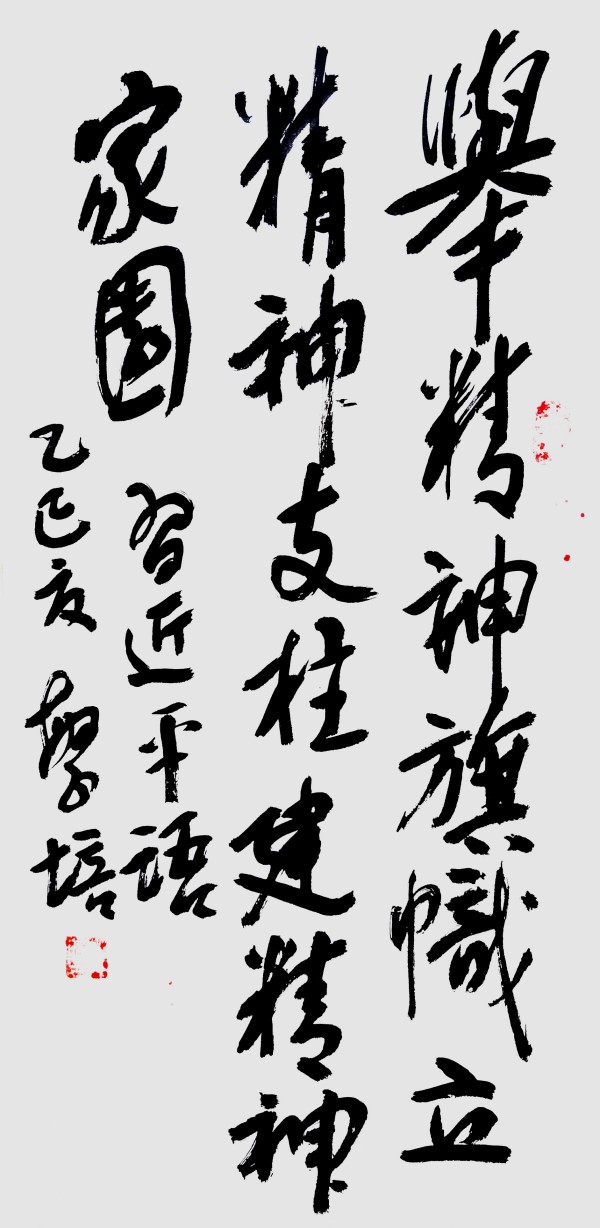 舉精神旗幟立
精神支柱建精神
家園
習近平語
乙巳夏
學培